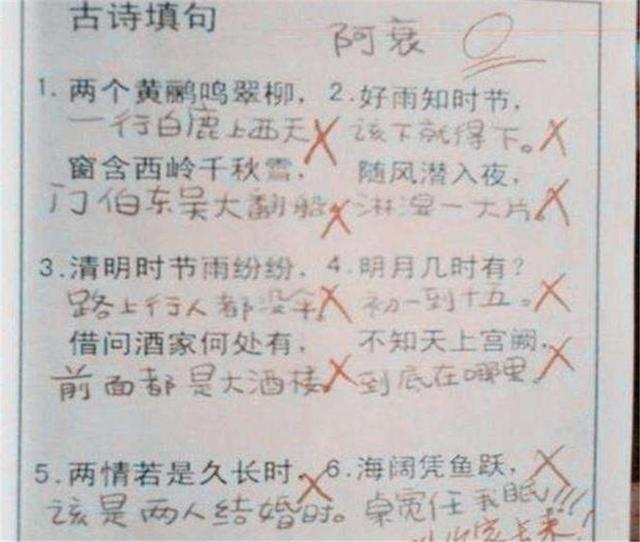 古诗填句
阿衰 0
1. 两个黄鹂鸣翠柳,
一行白鹿上西天
窗含西岭千秋雪,
门伯东吴大翻船
2. 好雨知时节,
该下就得下。
随风潜入夜,
淋湿一大片。
3. 清明时节雨纷纷,
路上行人都没伞
借问酒家何处有,
前面都是大酒楼
4. 明月几时有?
初一到十五。
不知天上宫阙,
到底在哪里
5. 两情若是久长时,
该是两人结婚时。
6. 海阔凭鱼跃,
桌宽任我眠!!!
叫你家长来!